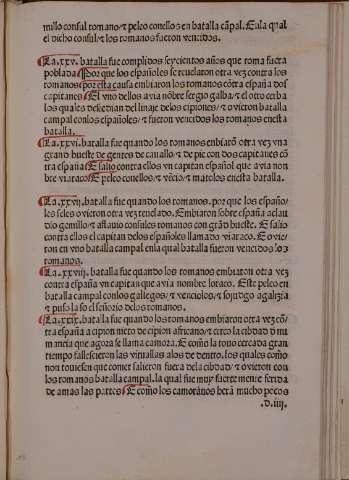 millo consul romano/⁊ peleo conellos en batalla cãpal. Enla qual
el dicho consul/⁊ los romanos fueron vencidos.
La .xxv. batalla fue complidos seyscientos años que roma fuera
poblada Por que los españoles se reuelaron otra vez contra los
romanos por esta causa embiaron los romanos cõtra españa dos
capitanes El vno dellos auia nõbre sergio galba/⁊ el otro
los quales decendian del linaje delos cipiones/⁊ ouieron batalla
campal conlos españoles/⁊ fueron vencidos los romanos enesta
batalla.
La .xxvi. batalla fue quando los romanos embiarõ otra vez vna
grand hueste de gentes de cauallo/⁊ de pie con dos capitanes cõ
tra españa E salio contra ellos vn capitan español que auia nom
bre viaraco E peleo conellos/⁊ vẽcio/⁊ matolos enesta batalla.
La .xxvii. batalla fue quando los romanos. por que los españo/
les seles ouieron otra vez reuelado. Embiaron sobre españa aclau
dio gemillo/⁊ aflauio consules romanos con grãd hueste. E salio
contra ellos el capitan delos españoles llamado viaraco. E ouie/
ron en vno batalla campal enla qual batalla fueron vencidos los
romanos.
La .xxviii. batalla fue quando los romanos embiaron otra vez
contra españa vn capitan que auia nombre loraco. Este peleo en
batalla campal conlos gallegos/⁊ venciolos/⁊ sojudgo agalizia
⁊ puso la so el señorio delos romanos.
La .xxix. batalla fue quando los romanos embiaron otra vez cõ/
tra españa a cipion nieto de cipion africano/⁊ cerco la cibdad d nu
mancia que agora se llama çamora. E como la touo cercada gran
tiempo fallescieron las viruallas alos de dentro. los quales como
non touiesen que comer salieron fuera dela cibdad/⁊ ouieron con
los romanos batalla campal. la qual fue muy fuertemente ferida
de amas las partes E como los çamoranos herã mucho pocos
.D.iij.